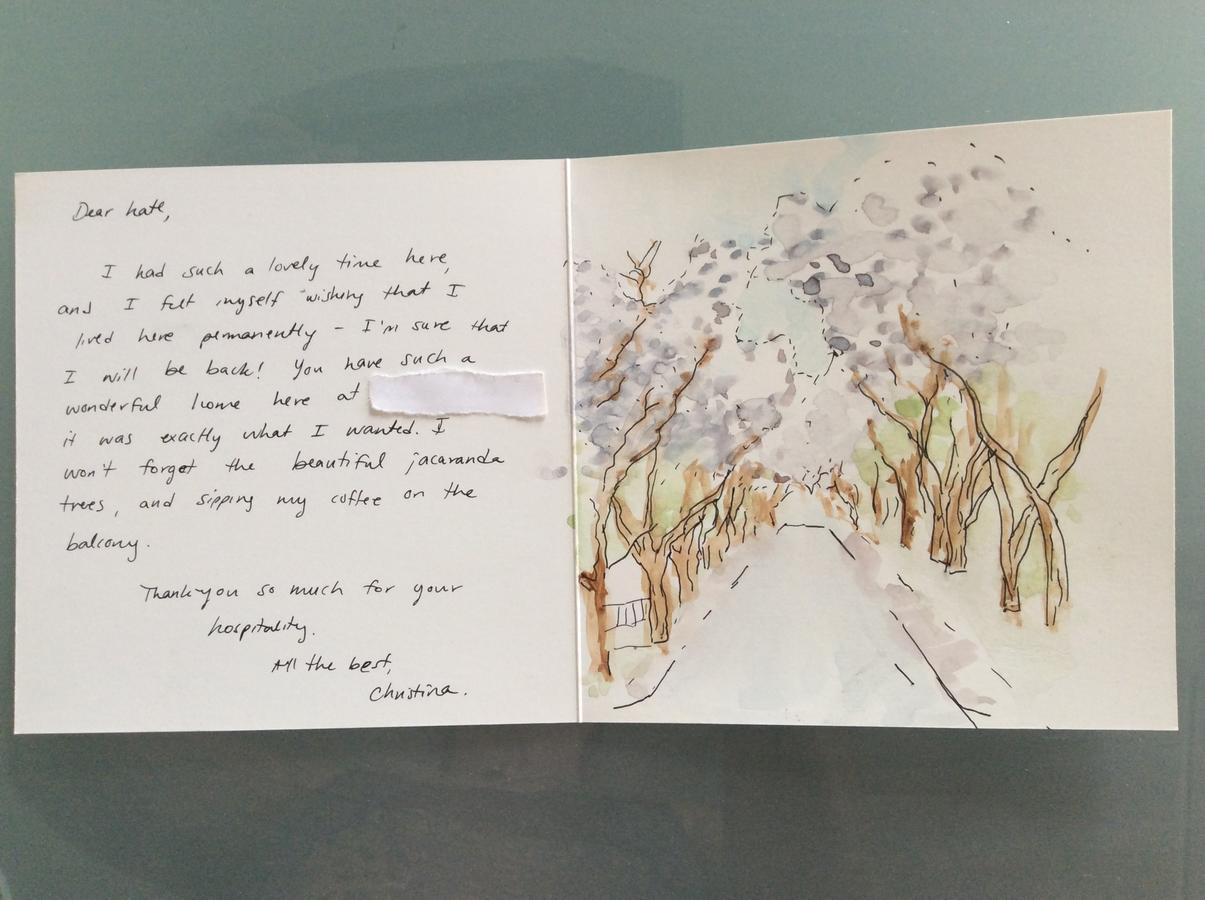 Dear Kate,
I had such a lovely time here,
and I felt myself wishing that I
lived here permanently - I'm sure that
I will be back! You have such a
wonderful home here at
it was exactly what I wanted. I
won't forget the beautiful jacaranda
trees, and sipping my coffee on the
balcony.
Thank you so much for your
hospitality.
All the best,
Christina.